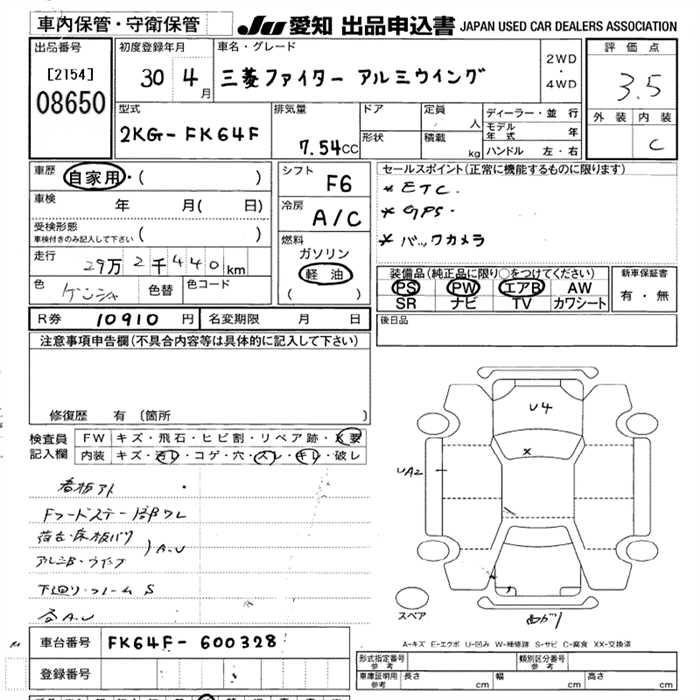 車内保管・守衛保管
JU 愛知 出品申込書 JAPAN USED CAR DEALERS ASSOCIATION
出品番号
[2154]
08650
初度登録年月
30 4月
車名・グレード
三菱ファイター アルミウイング
2WD・4WD
評価点
3.5
外装 内装
C
型式
2KG-FK64F
排気量
7.54CC
ドア
形状
定員 人
積載 kg
ディーラー・並行
モデル年式 年
ハンドル 左・右
車歴
自家用・( )
車検 年 月( 日)
受検形態
車検付きのみ記入して下さい ( )
走行
29万2千440km
色
ゲンシャ
色替
色コード
シフト
F6
冷房
A/C
燃料
ガソリン
軽油
( )
セールスポイント(正常に機能するものに限ります)
* ETC.
* GPS.
* バックカメラ
装備品(純正品に限り○をつけてください)
PS PW エアB AW
SR ナビ TV カワシート
新車保証書
有・無
R券 10910 円
名変期限 月 日
後日品
注意事項申告欄(不具合内容等は具体的に記入して下さい)
修復歴 有 (箇所 )
検査員記入欄
FW キズ・飛石・ヒビ割・リペア跡・X要
内装 キズ・汚レ・コゲ・穴・スレ・キレ・破レ
看板アト
Fフードステー部サレ
荷台・床板バリ
アルミB・ウイング
A.U
下回り・フレーム S
各A.U
U4
X
UA2
スペア
A-キズ E-エクボ U-凹み W-補修跡 S-サビ C-腐食 XX-交換済
車台番号 FK64F-600328
登録番号
形式指定番号 参考
類別区分番号 参考
車庫証明用 参考
長さ cm
幅 cm
高さ cm